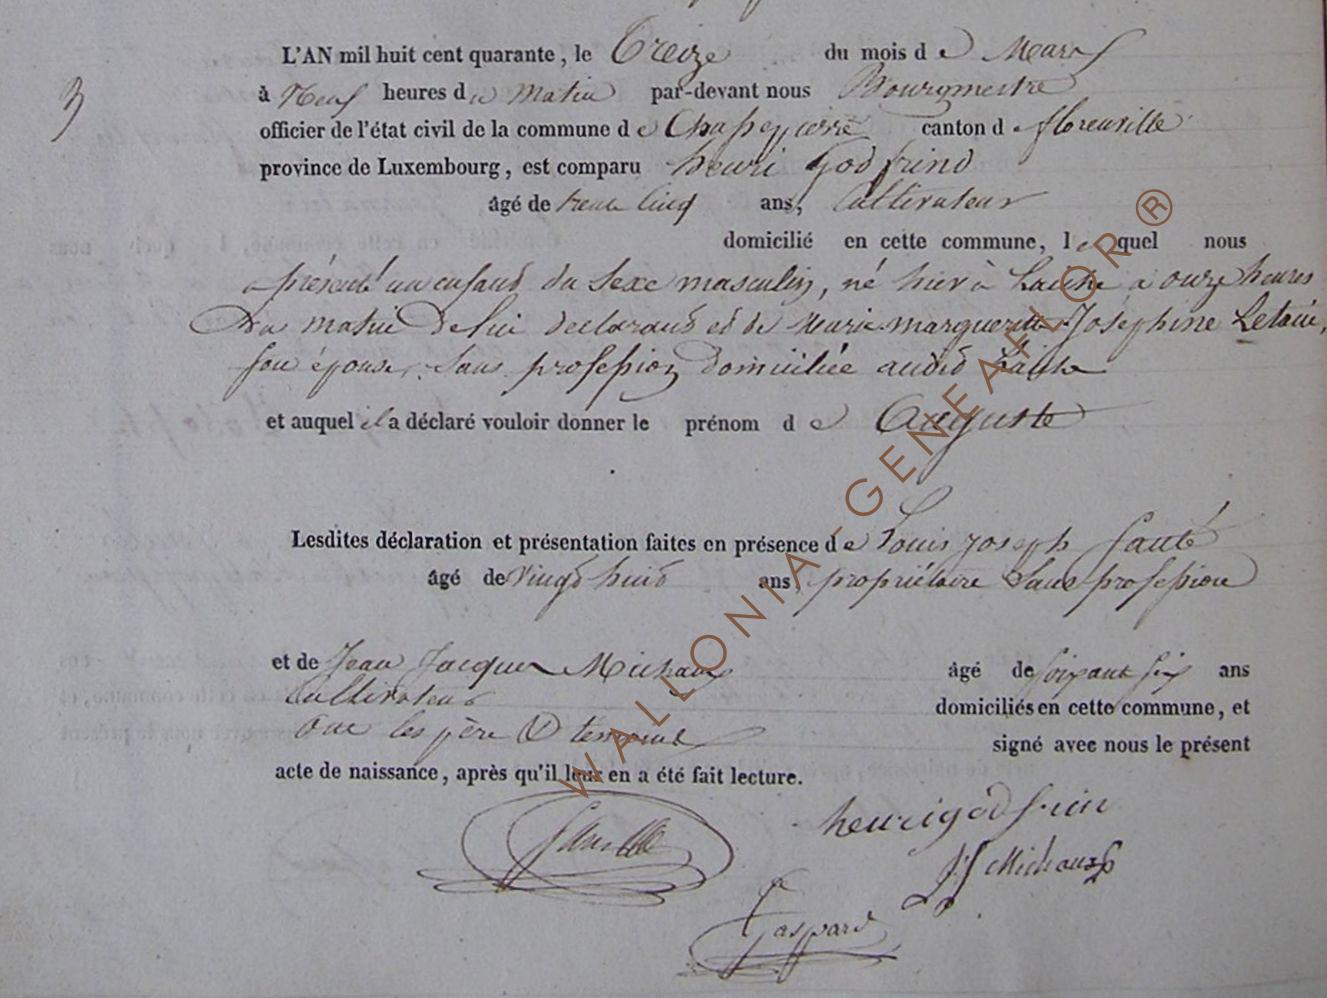 L'AN mil huit cent quarante, le Treize du mois de Mars
3
à Neuf heures du matin par-devant nous Bourgmestre
officier de l'état civil de la commune de Chassepierre canton de florenville
province de Luxembourg, est comparu henri Godfrind
âgé de trente Cinq ans, Cultivateur
domicilié en cette commune, lequel nous
a présenté un enfand du Sexe masculin, né hier à Laiche à onze heures
Du matin De lui declarand et de Marie marguerite Joséphine Letaiie,
son épouse, Sans profession domiciliée audid Laiche
et auquel il a déclaré vouloir donner le prénom de Auguste
Lesdites déclaration et présentation faites en présence de Louis joseph
âgé de vingd huid ans, propriétaire Sans profession
et de Jean Jacques Michaux âgé de soixant six ans
Cultivateur domiciliés en cette commune, et
one les père & temoins signé avec nous le présent
acte de naissance, après qu'il leur en a été fait lecture.
henri godfrin
JJ Michaux
Gaspard
WALLONIA-GENEAFLOR ®